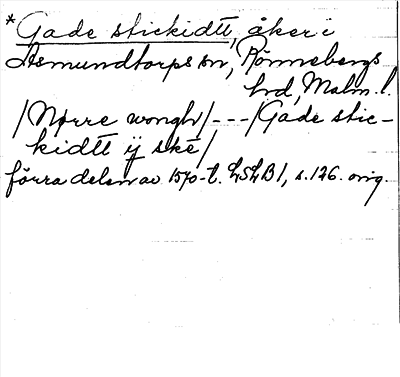 *Gade stickidtt, åker i
Asmundtorps sn, Rönnebergs
hrd, Malm. l.
/Nørre wongh/---/Gade stic-
kidtt ij ske/
förra delen av 1570-t. LSLB1, s. 126. orig.